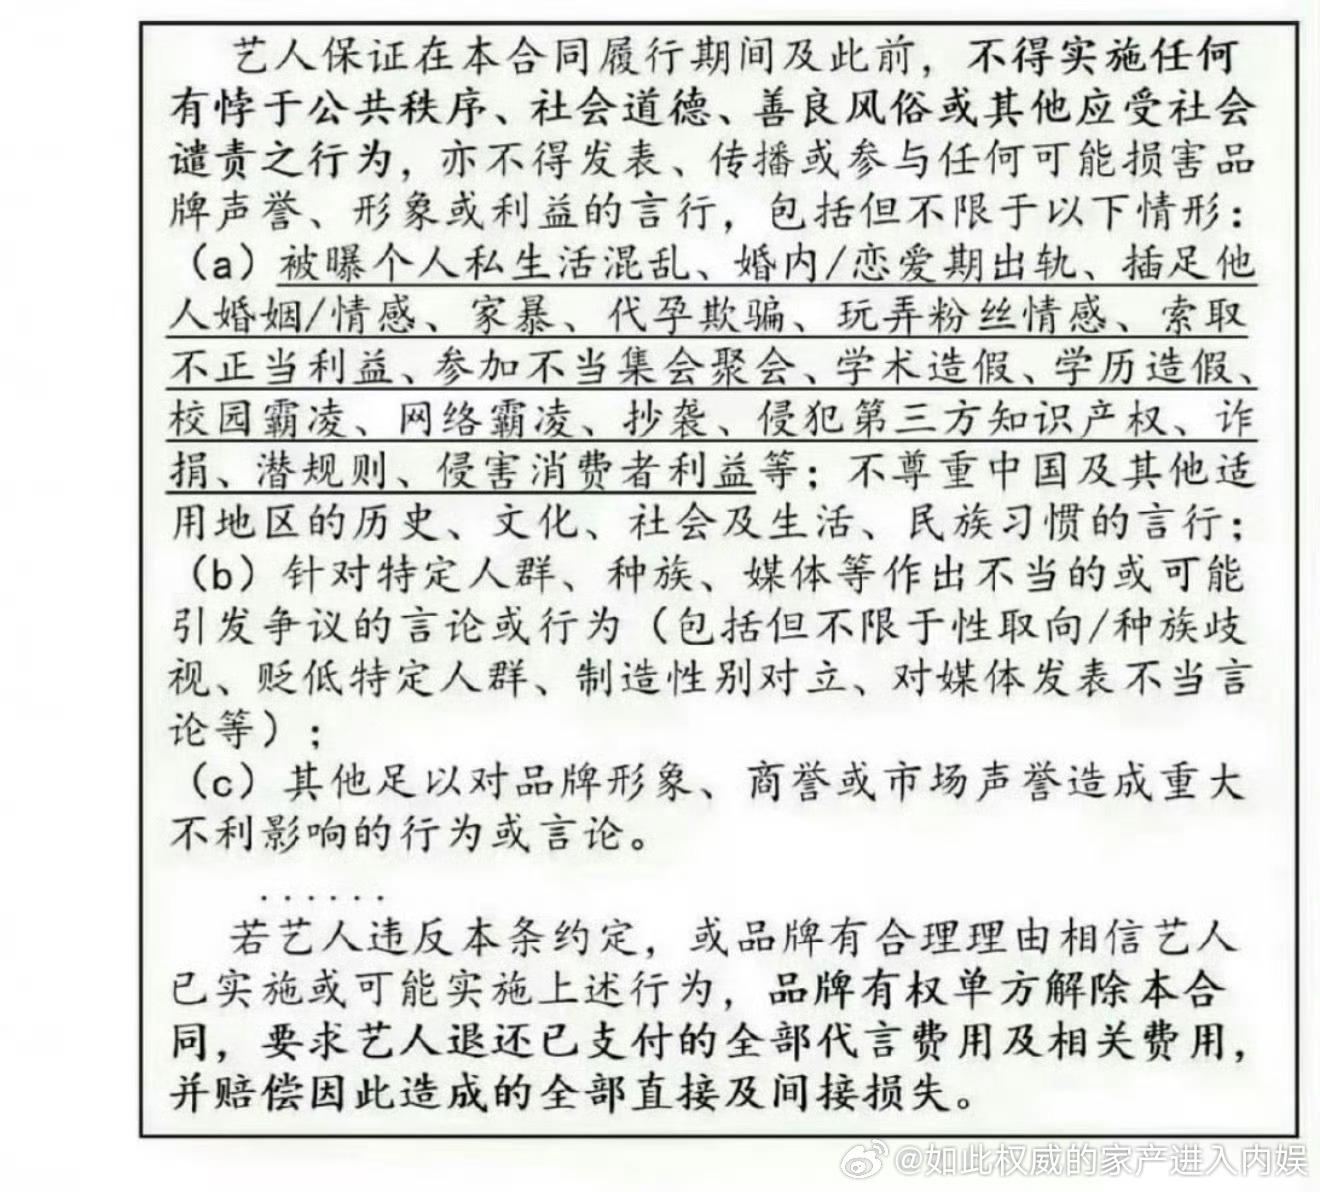 艺人保证在本合同履行期间及此前，不得实施任何
有悖于公共秩序、社会道德、善良风俗或其他应受社会
谴责之行为，亦不得发表、传播或参与任何可能损害品
牌声誉、形象或利益的言行，包括但不限于以下情形：
（a）被曝个人私生活混乱、婚内/恋爱期出轨、插足他
人婚姻/情感、家暴、代孕欺骗、玩弄粉丝情感、索取
不正当利益、参加不当集会聚会、学术造假、学历造假、
校园霸凌、网络霸凌、抄袭、侵犯第三方知识产权、诈
捐、潜规则、侵害消费者利益等；不尊重中国及其他适
用地区的历史、文化、社会及生活、民族习惯的言行；
（b）针对特定人群、种族、媒体等作出不当的或可能
引发争议的言论或行为（包括但不限于性取向/种族歧
视、贬低特定人群、制造性别对立、对媒体发表不当言
论等）；
（c）其他足以对品牌形象、商誉或市场声誉造成重大
不利影响的行为或言论。
......
若艺人违反本条约定，或品牌有合理理由相信艺人
已实施或可能实施上述行为，品牌有权单方解除本合
同，要求艺人退还已支付的全部代言费用及相关费用，
并赔偿因此造成的全部直接及间接损失。
@如此权威的家产进入内娱